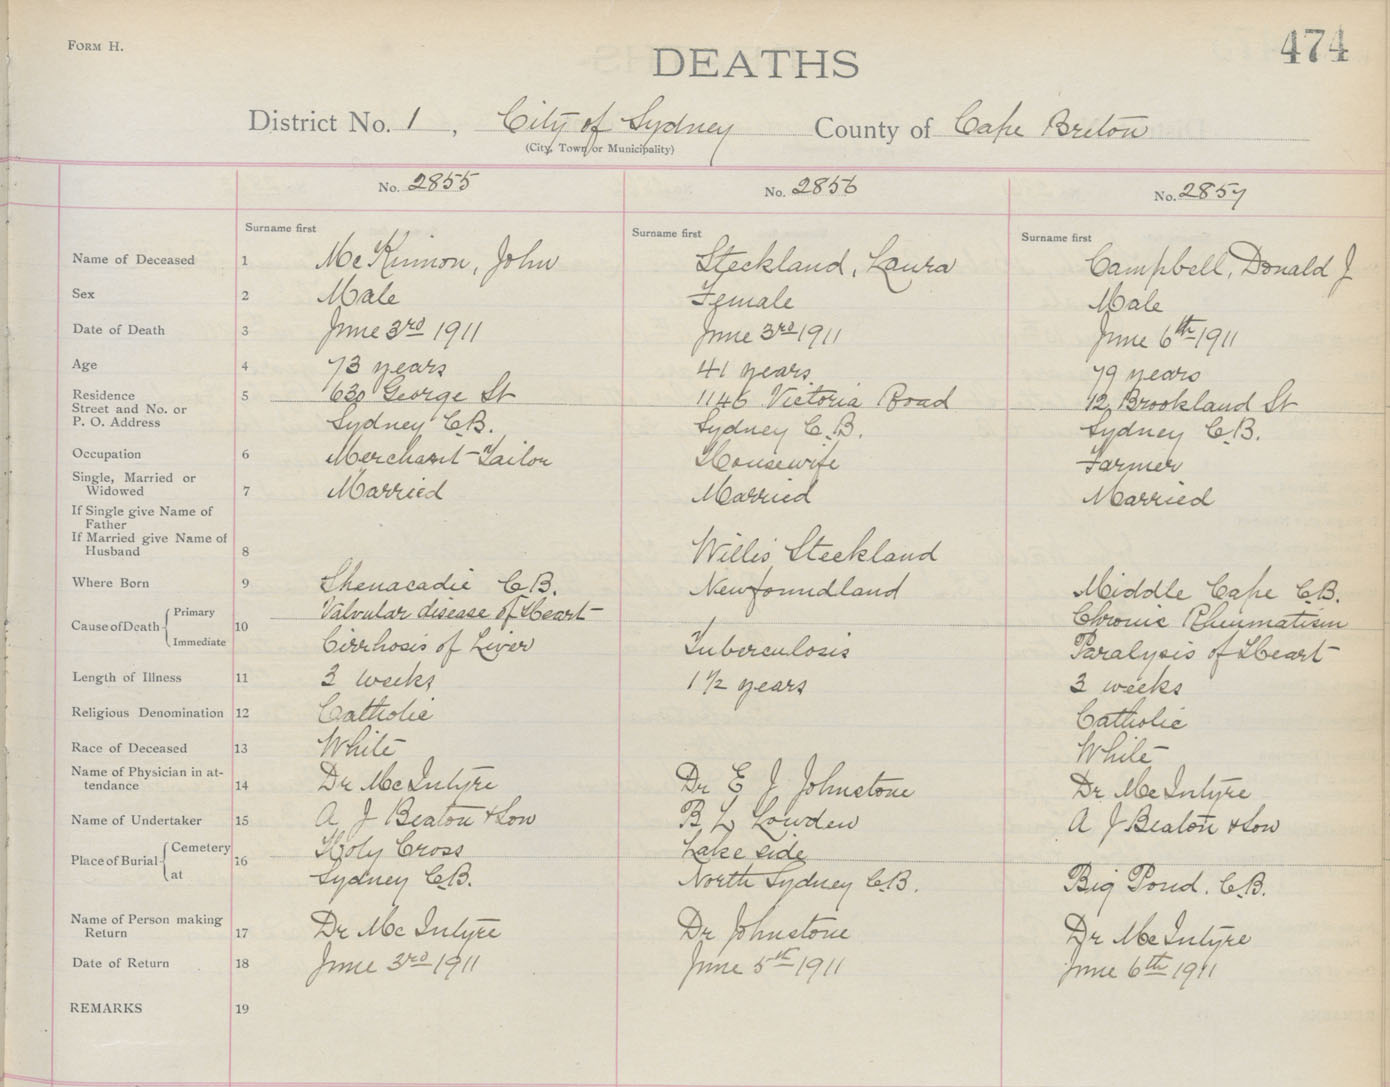 FORM H.
474
DEATHS
District No. 1, City of Sydney County of Cape Breton
(City, Town or Municipality)
No. 2855 No. 2856 No. 2857
Surname first Surname first Surname first
Name of Deceased 1 McKinnon, John Steckland, Laura Campbell, Donald J
Sex 2 Male Female Male
Date of Death 3 June 3rd 1911 June 3rd 1911 June 6th 1911
Age 4 73 years 41 years 79 years
Residence 5 630 George St 1146 Victoria Road 12 Brookland St
Street and No. or
P. O. Address Sydney C.B. Sydney C.B. Sydney C.B.
Occupation 6 Merchant-Tailor Housewife Farmer
Single, Married or
Widowed 7 Married Married Married
If Single give Name of
Father
If Married give Name of
Husband 8 Willis Steckland
Where Born 9 Shenacadie C.B. Newfoundland Middle Cape C.B.
Cause of Death 10 Primary Valvular disease of Heart Chronic Rheumatism
Immediate Cirrhosis of Liver Tuberculosis Paralysis of Heart
Length of Illness 11 3 weeks 1 1/2 years 3 weeks
Religious Denomination 12 Catholic Catholic
Race of Deceased 13 White White
Name of Physician in at-
tendance 14 Dr McIntyre Dr E J Johnstone Dr McIntyre
Name of Undertaker 15 A J Beaton & Son B L Lowden A J Beaton & Son
Place of Burial 16 Cemetery Holy Cross Lake side
at Sydney C.B. North Sydney C.B. Big Pond. C.B.
Name of Person making
Return 17 Dr McIntyre Dr Johnstone Dr McIntyre
Date of Return 18 June 3rd 1911 June 5th 1911 June 6th 1911
REMARKS 19